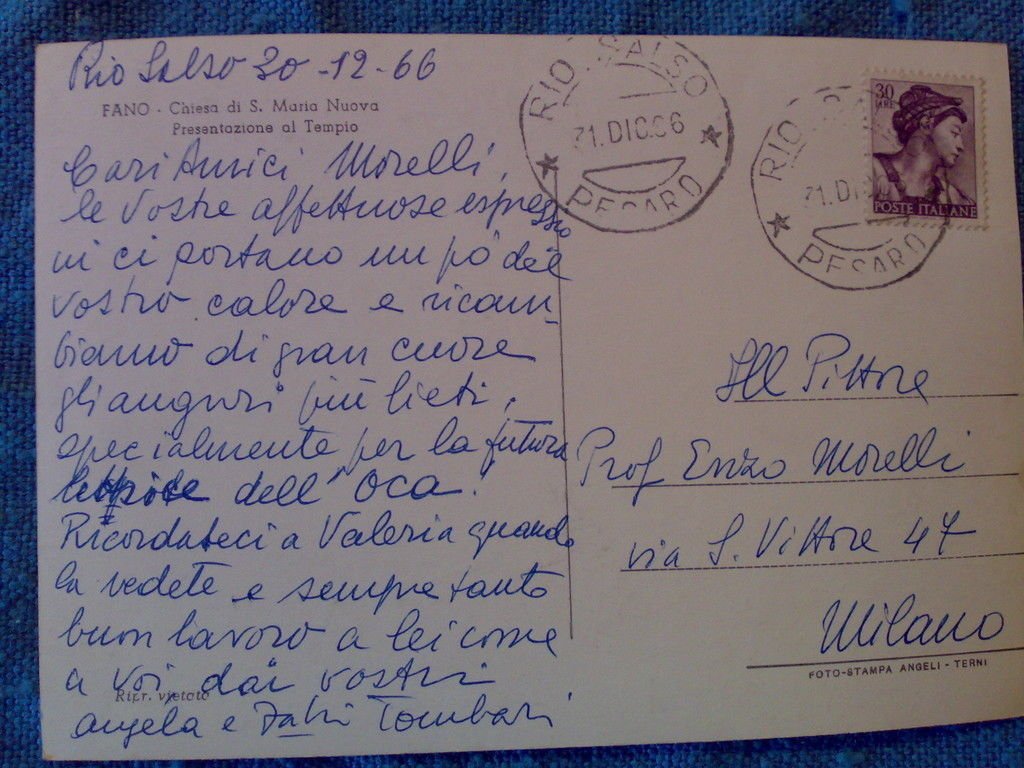 Rio Salso 30-12-66
FANO - Chiesa di S. Maria Nuova
Presentazione al Tempio
Cari Amici Morelli,
le Vostre affettuose espressio
ni ci portano un pó del
vostro calore e ricam-
biamo di gran cuore
gli auguri più lieti,
specialmente per la futura
dell'Oca!
Ricordateci a Valeria quando
la vedete e sempre tanto
buon lavoro a lei come
a voi dai vostri
Ripr. vietato
Angela e Fabri Tombari
RIO SALSO
31.DIC.66
PESARO
RIO
31.DI
PESARO
30
LIRE
POSTE ITALIANE
Ill Pittore
Prof Enzo Morelli
via S. Vittore 47
Milano
FOTO-STAMPA ANGELI - TERNI